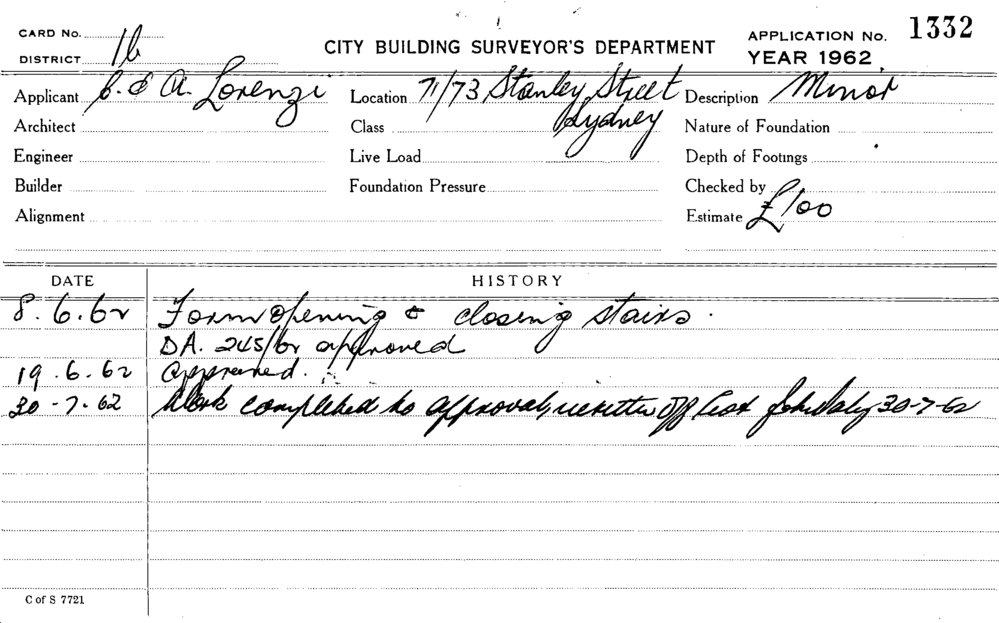 CARD No.
DISTRICT 1b
CITY BUILDING SURVEYOR'S DEPARTMENT
APPLICATION No. 1332
YEAR 1962
Applicant & A. Lorenzi
Location 71/73 Stanley Street Sydney
Description Minor
Architect
Class
Nature of Foundation
Engineer
Live Load
Depth of Footings
Builder
Foundation Pressure
Checked by
Alignment
Estimate £100
DATE HISTORY
8.6.62 Form opening & closing stairs.
DA. 245/62 approved
19.6.62 Approved.
30-7-62 Work completed to approval, written off 30-7-62
C of S 7721